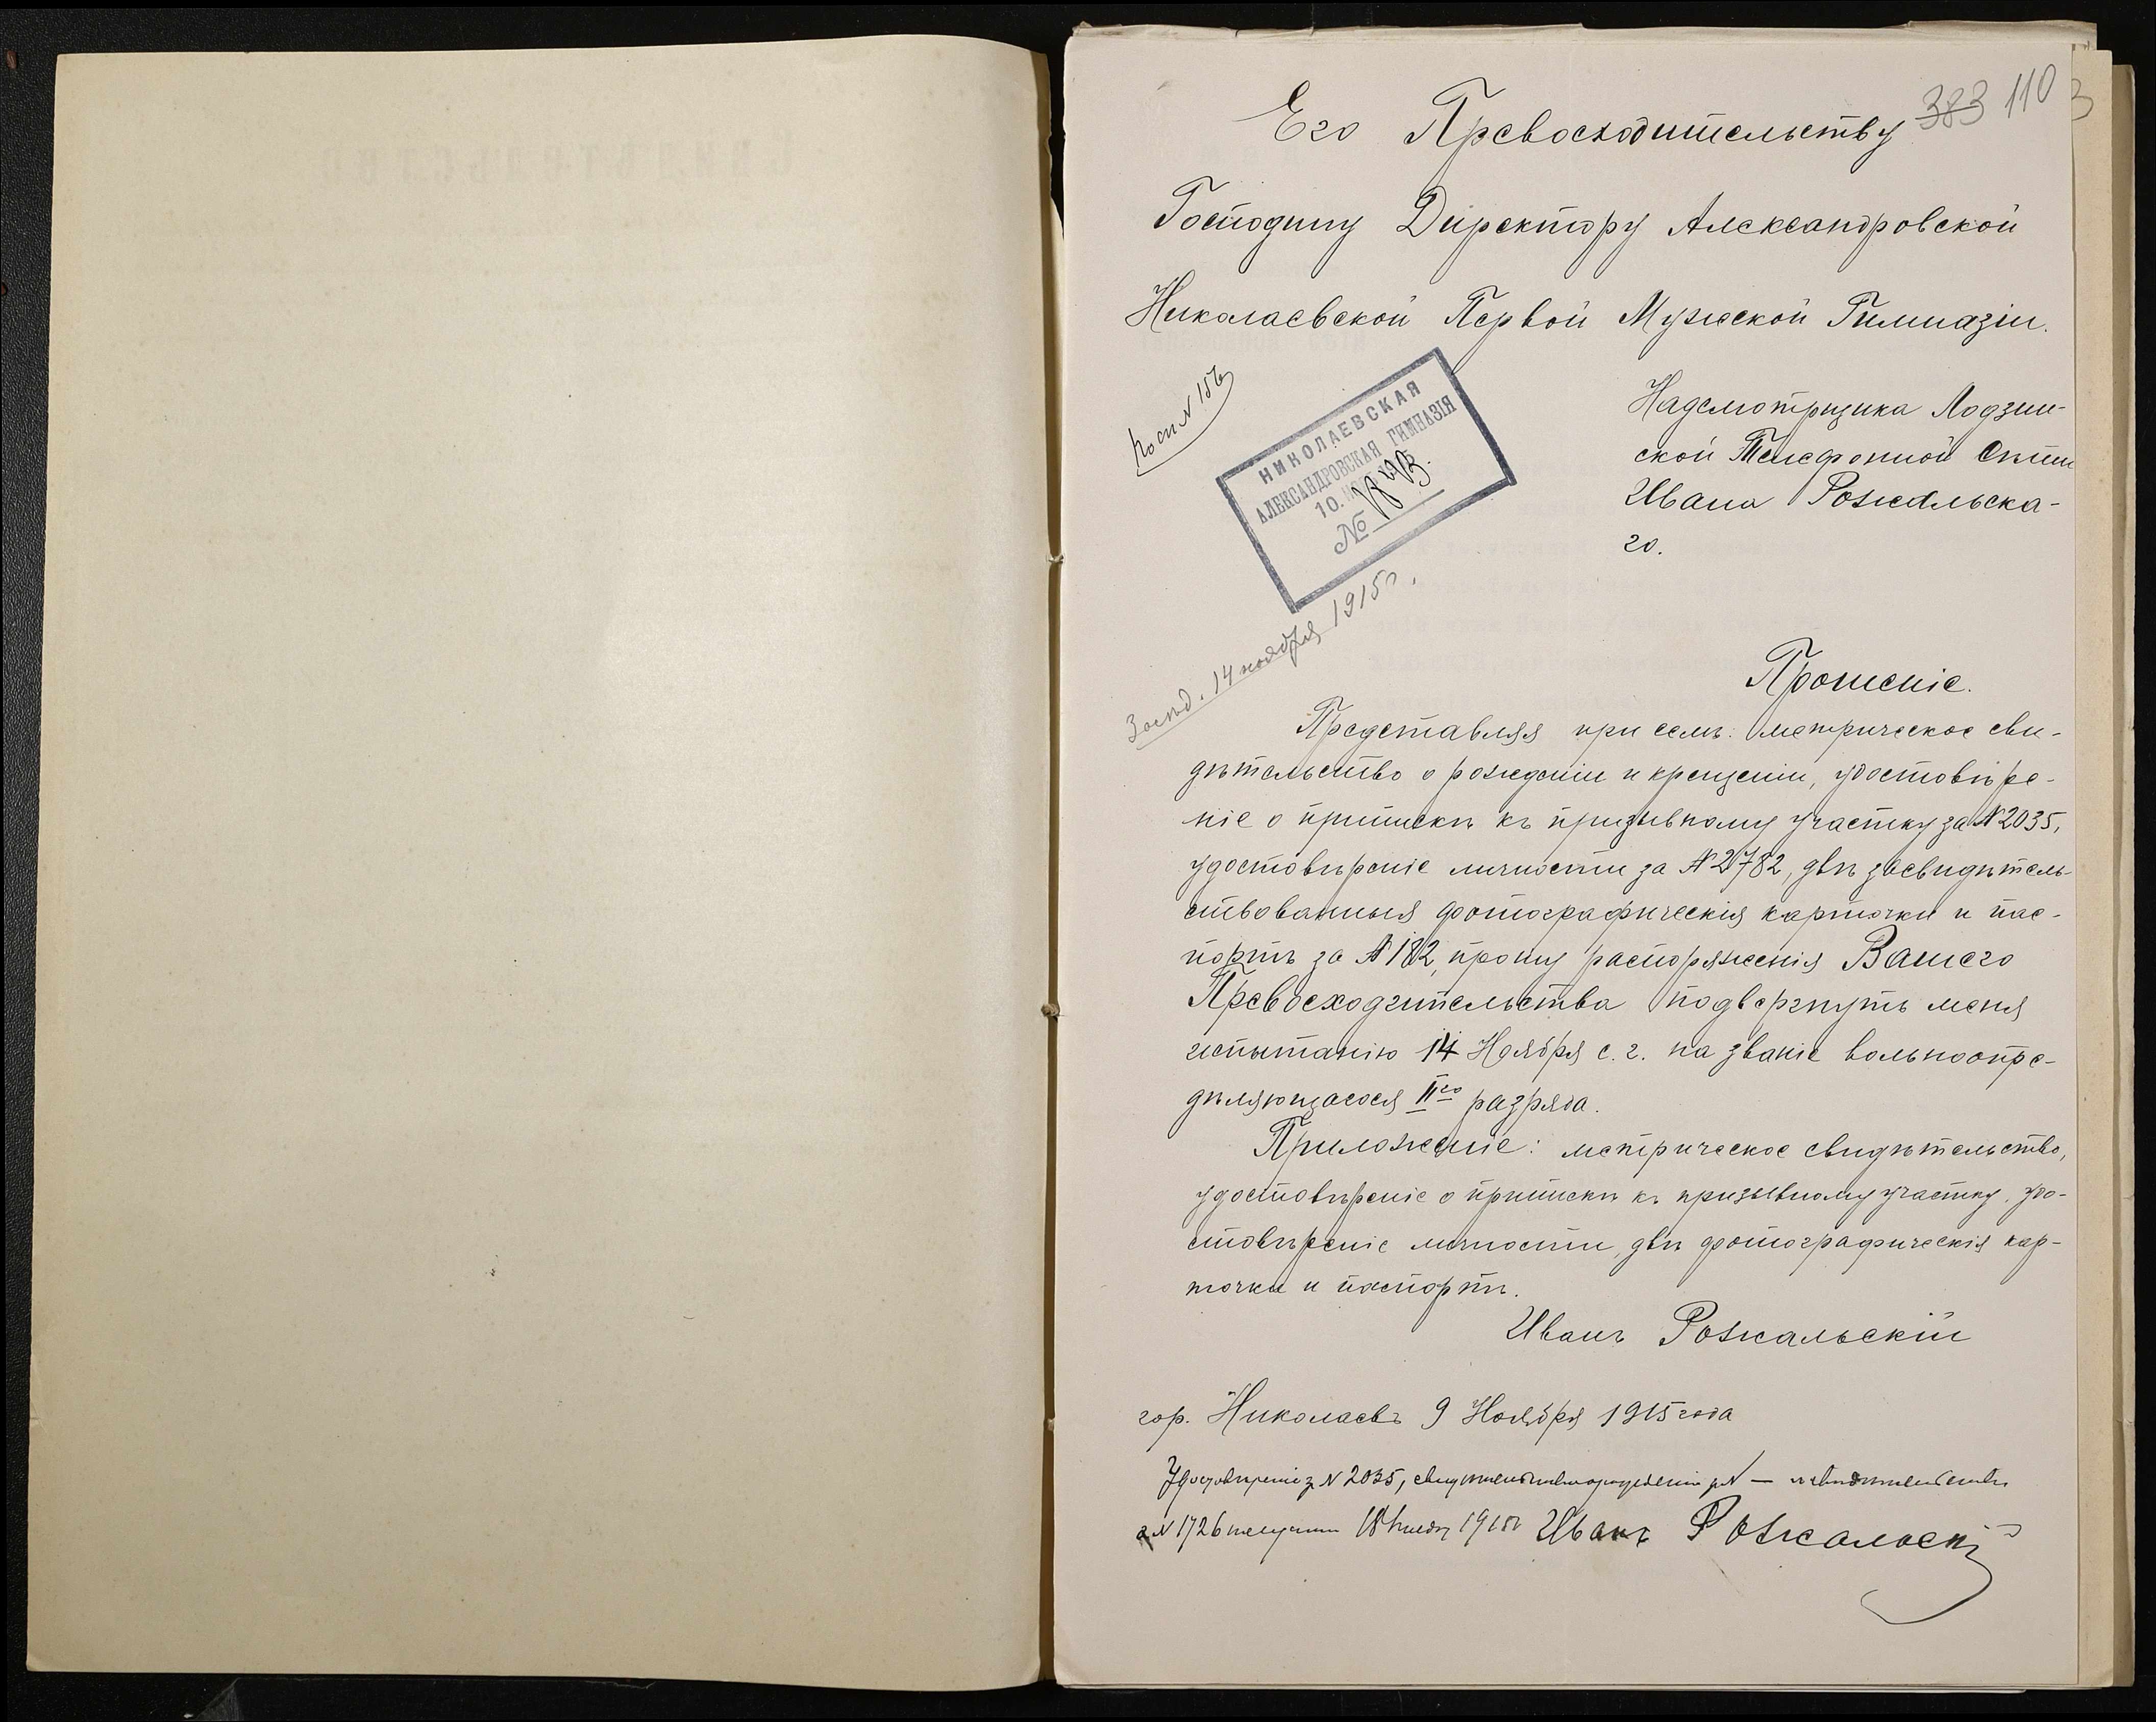 383 110
Его Превосходительству
Господину Директору Александровской
Николаевской Первой Мужской Гимназіи.
НИКОЛАЕВСКАЯ
АЛЕКСАНДРОВСКАЯ ГИМНАЗІЯ
10.
№
Надсмотрщика Лодзин-
ской Телефонной Сѣти
Ивана Рожальска-
го.
14 ноября 1915 г.
Прошеніе.
Представляя при семъ: метрическое сви-
дѣтельство о рожденіи и крещеніи, удостовѣре-
ніе о припискѣ къ призывному участку за № 2035,
удостовѣреніе личности за № 2782, двѣ засвидѣтель-
ствованныя фотографическія карточки и пас-
портъ за № 182, прошу распоряженія Вашего
Превосходительства подвергнуть меня
испытанію 14 Ноября с. г. на званіе вольноопре-
дѣляющагося II го разряда.
Приложеніе: метрическое свидѣтельство,
удостовѣреніе о припискѣ къ призывному участку, удо-
стовѣреніе личности, двѣ фотографическія кар-
точки и паспортъ.
Иванъ Рожальскій
гор. Николаевъ 9 Ноября 1915 года
Удостовѣреніе з. № 2035,
№ 1726 получилъ 18 Иванъ Рожальскій